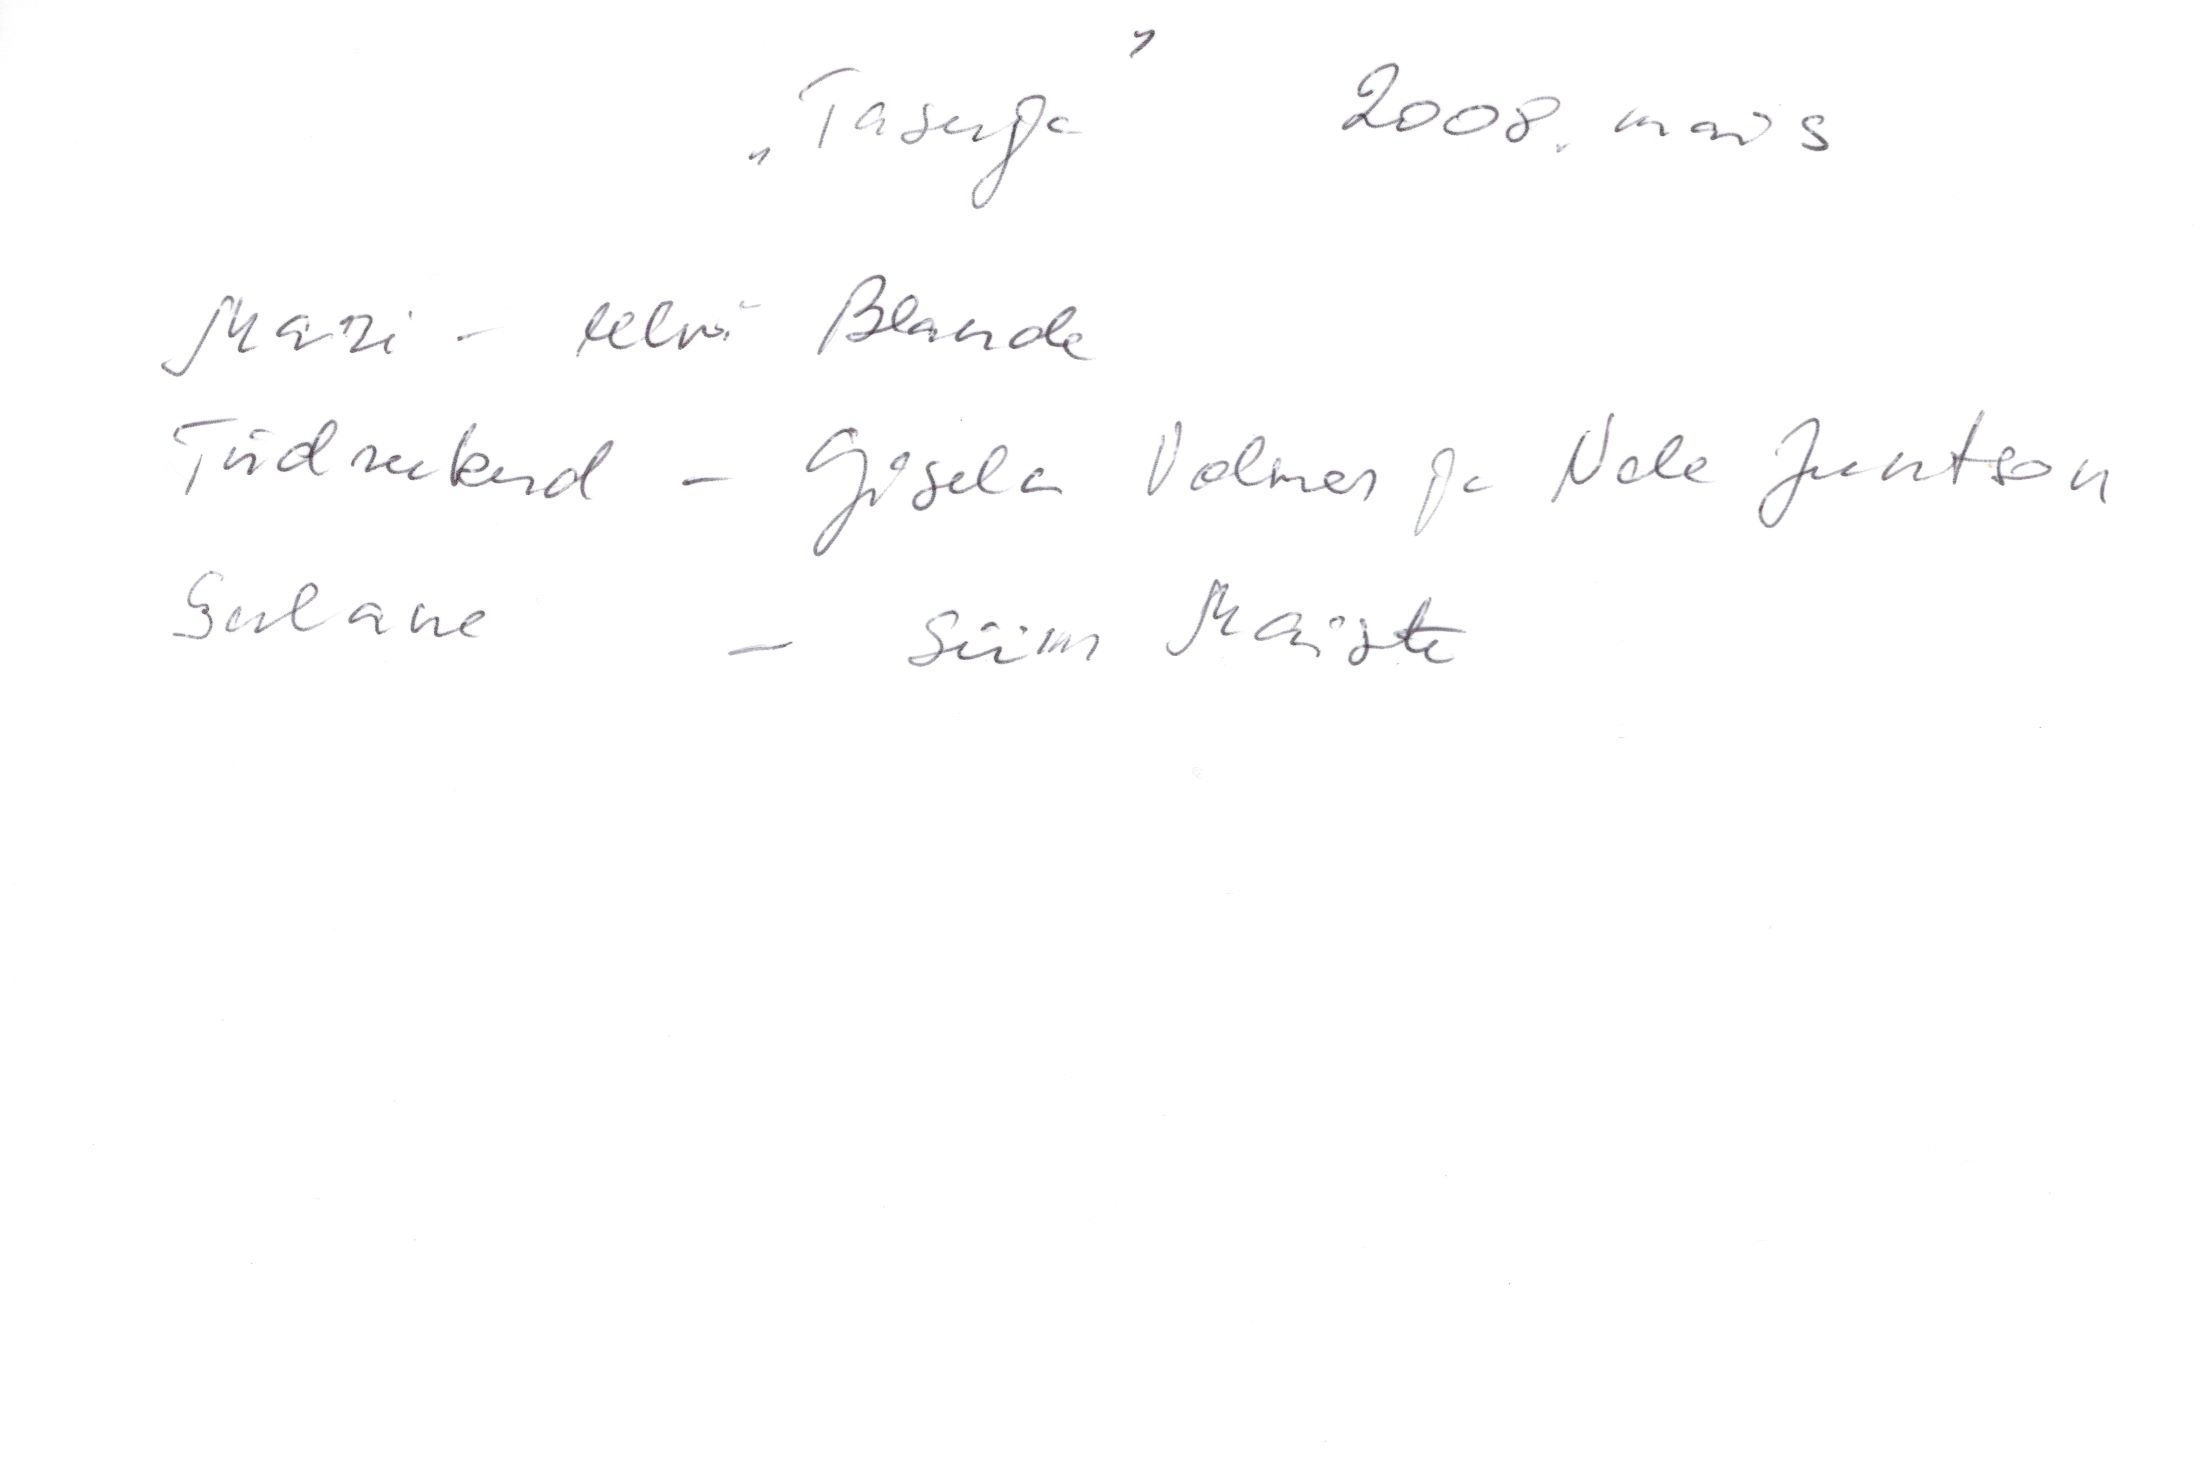 „Tasuja” 2008. mais
Mari - Helvi Blande
Tüdrukud - Gisela Volmer ja Nele Juntson
Sulane - Siim Maiste